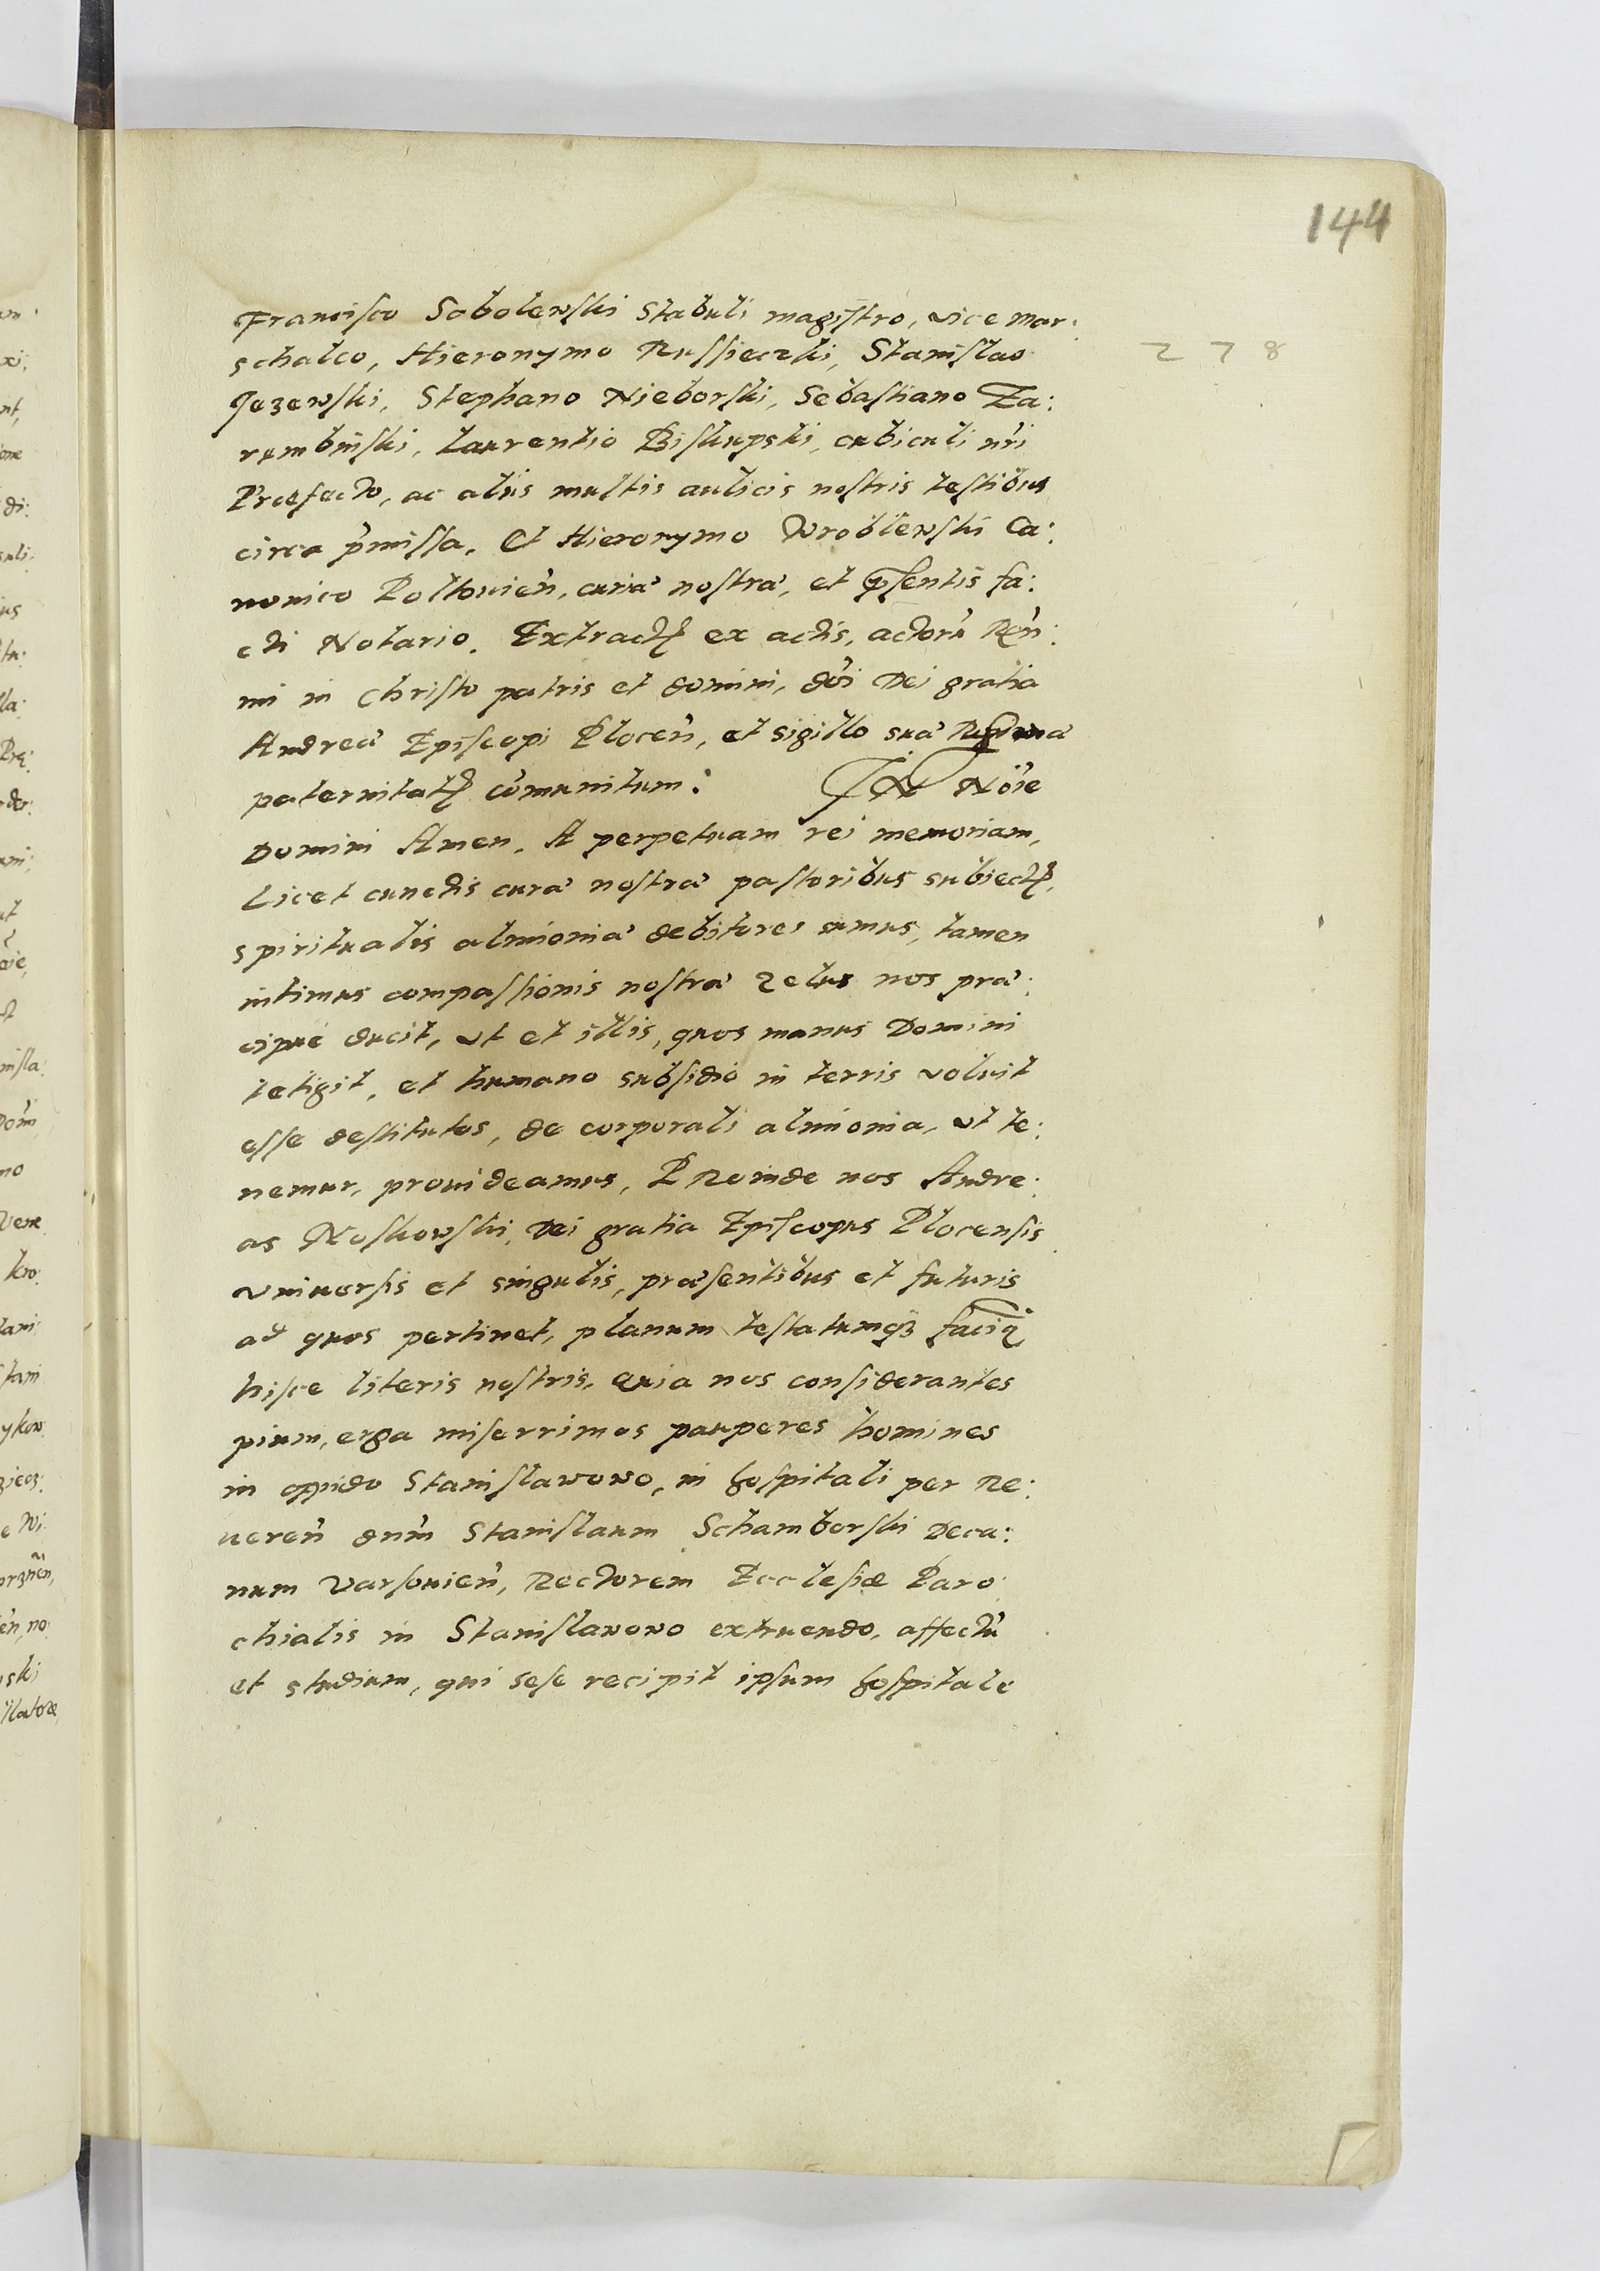 144
Francisco Sobolewski Stabuli magistro, vice Mar:
schalco, Hieronymo Russieczki, Stanislao
278
Jezewski, Stephano Nieborski, Sebastiano Za:
rembinski, Laurentio Biskupski, cubiculi nr̃i
Præfecto, ac aliis multis aulicis nostris testibus
circa p̃missa. Et Hieronymo Wroblewski Ca:
nonico Poltouien̄, curiæ nostræ, et p̃sentis fa:
cti Notario. Extract ex actis, actorũ Rēn:
mi in Christo patris et domini, dñi Dei gratia
Andreæ Episcopi Plocen̄, et sigillo suæ
paternitatis cōmunitum. IN Nōie
Domini Amen. A perpetuam rei memoriam,
Licet cunctis curæ nostræ pastoribus subiectis,
spiritualis alimoniæ debitores sumus, tamen
intimus compassionis nostræ zelus nos præ:
cipuè ducit, ut et illis, quos manus Domini
tetigit, et humano subsidio in terris voluit
esse destitutos, de corporali alimonia, ut te:
nemur, prouideamus, PRoinde nos Andre:
as Noskowski, Dei gratia Episcopus Plocensis
vniuersis et singulis, præsentibus et futuris
ad quos pertinet, planum testatumq3 faciq̃
hisce literis nostris, quia nos considerantes
pium, erga miserrimos pauperes homines
in oppido Stanislawowo, in hospitali per Re:
ueren̄ dnm̄ Stanislaum Schamborski Deca:
num Varsouien̄, Rectorem Ecclesiæ Paro
chialis in Stanislawowo extruendo, affectũ
et studium, qui sese recipit ipsum hospitale